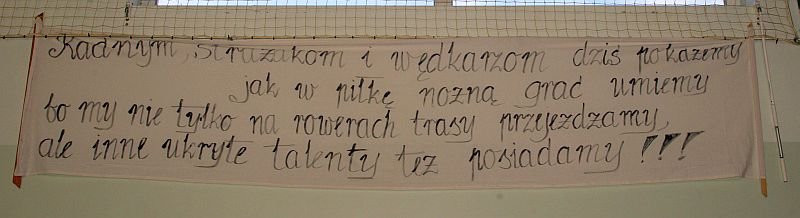 Radnym, strażakom i wędkarzom dziś pokażemy
jak w piłkę nożną grać umiemy
bo my nie tylko na rowerach trasy przejeżdżamy,
ale inne ukryte talenty też posiadamy !!!